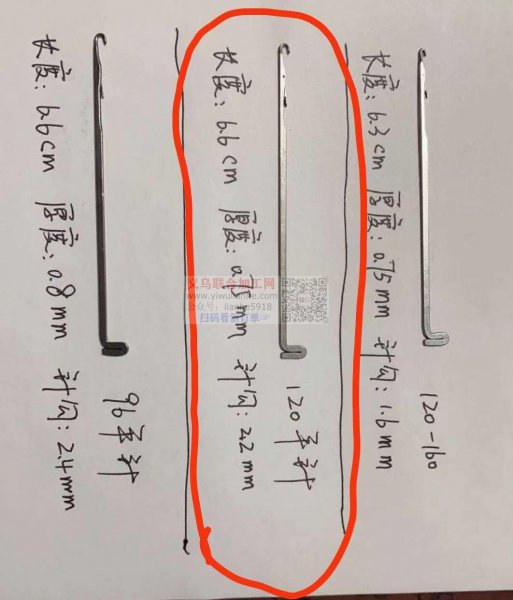 120-160
长度：6.3cm 厚度：0.75mm 针勾：1.6mm
120平针
长度：6.6cm 厚度：0.75mm 针勾：2.2mm
96平针
长度：6.6cm 厚度：0.8mm 针勾：2.4mm
义乌联合加工网
www.yiwulianhe.com
公众号：lianhe5918
扫码看新订单